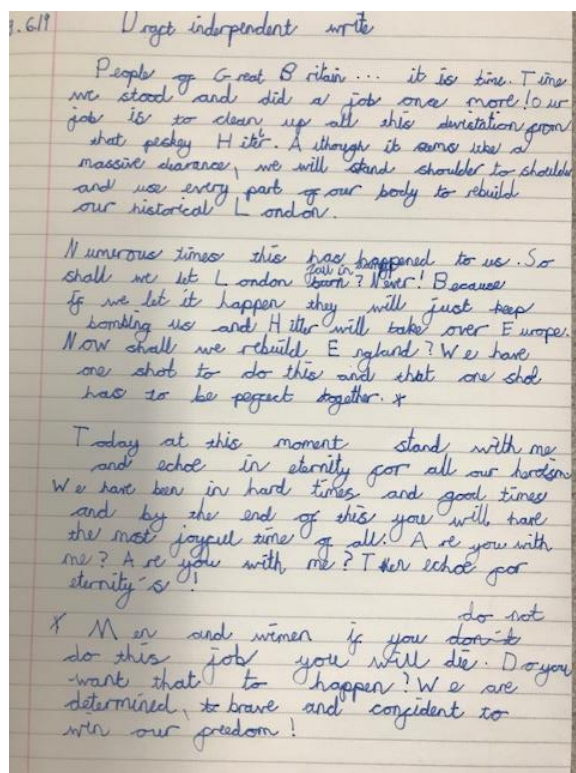 3.6.19 Dragt independent write
People of Great Britain ... it is time. Time
we stood and did a job once more! Our
job is to clean up all this devistation from
that peskey Hitler. Although it seems like a
massive clearance, we will stand shoulder to shoulder
and use every part of our body to rebuild
our historical London.
Numerous times this has happened to us. So
shall we let London fall in burn? Never! Because
if we let it happen they will just keep
bombing us and Hitler will take over Europe.
Now shall we rebuild England? We have
one shot to do this and that one shot
has to be perfect together. *
Today at this moment stand with me
and echoe in eternity for all our heroism
We have been in hard times and good times
and by the end of this you will have
the most joyfull time of all. Are you with
me? Are you with me? Then echoe for
eternity's!
do not
* Men and wimen if you don't
do this job you will die. Do you
want that to happen? We are
determined, to brave and confident to
win our freedom!